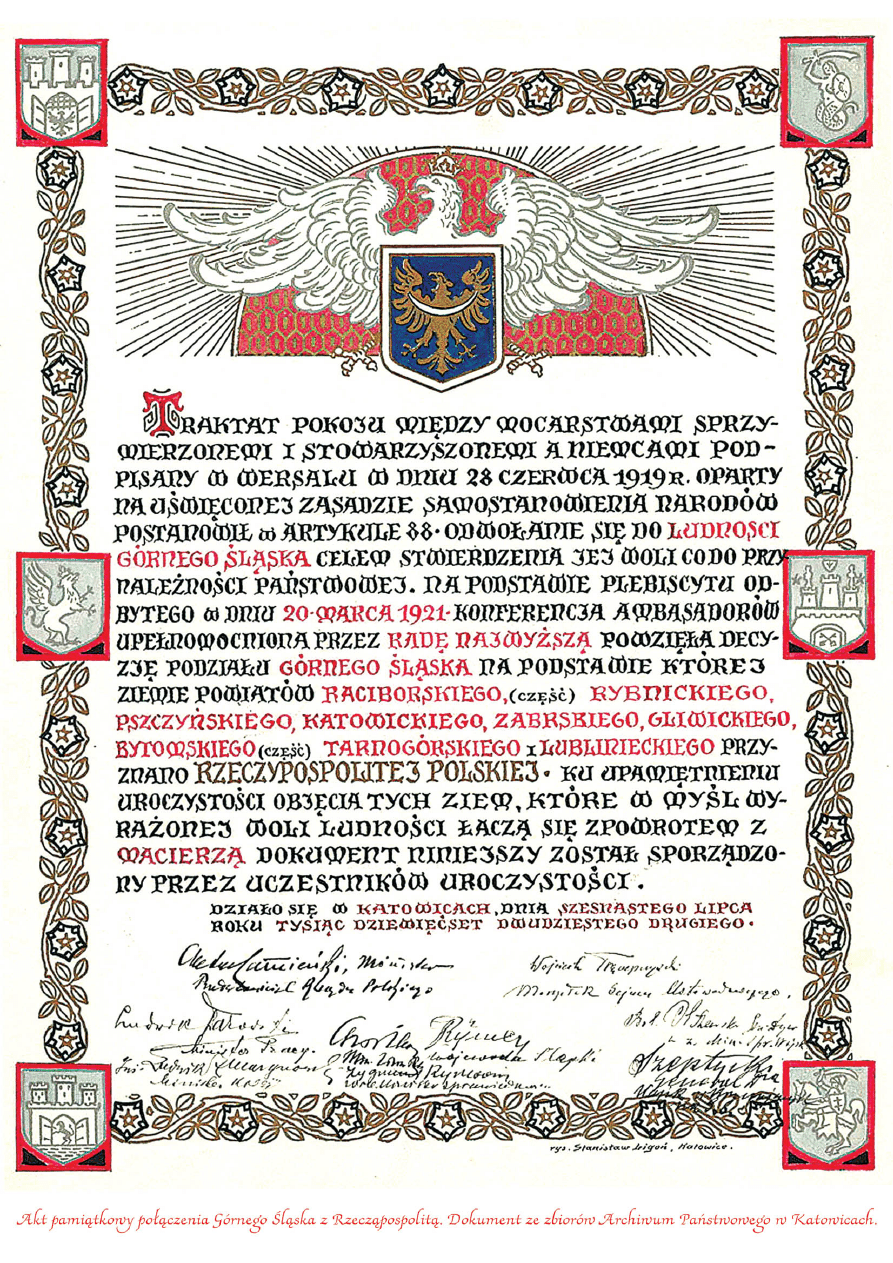 TRAKTAT POKOJU MIĘDZY MOCARSTWAMI SPRZY-
MIERZONEMI I STOWARZYSZONEMI A NIEMCAMI POD-
PISANY W WERSALU W DNIU 28 CZERWCA 1919 R. OPARTY
NA UŚWIĘCONEJ ZASADZIE SAMOSTANOWIENIA NARODÓW
POSTANOWIŁ W ARTYKULE 88· ODWOŁANIE SIĘ DO LUDNOŚCI
GÓRNEGO ŚLĄSKA CELEM STWIERDZENIA JEJ WOLI CO DO PRZY
NALEŻNOŚCI PAŃSTWOWEJ. NA PODSTAWIE PLEBISCYTU OD-
BYTEGO W DNIU 20·MARCA 1921·KONFERENCJA AMBASADORÓW
UPEŁNOMOCNIONA PRZEZ RADĘ NAJWYŻSZĄ POWZIĘŁA DECY-
ZJĘ PODZIAŁU GÓRNEGO ŚLĄSKA NA PODSTAWIE KTÓREJ
ZIEMIE POWIATÓW RACIBORSKIEGO,(CZĘŚĆ) RYBNICKIEGO,
PSZCZYŃSKIEGO, KATOWICKIEGO, ZABRSKIEGO, GLIWICKIEGO,
BYTOMSKIEGO (CZĘŚĆ) TARNOGÓRSKIEGO I LUBLINIECKIEGO PRZY-
ZNANO RZECZYPOSPOLITEJ POLSKIEJ· KU UPAMIĘTNIENIU
UROCZYSTOŚCI OBJĘCIA TYCH ZIEM, KTÓRE W MYŚL WY-
RAŻONEJ WOLI LUDNOŚCI ŁĄCZĄ SIĘ ZPOWROTEM Z
MACIERZĄ DOKUMENT NINIEJSZY ZOSTAŁ SPORZĄDZO-
NY PRZEZ UCZESTNIKÓW UROCZYSTOŚCI.
DZIAŁO SIĘ W KATOWICACH, DNIA SZESNASTEGO LIPCA
ROKU TYSIĄC DZIEWIĘĆSET DWUDZIESTEGO DRUGIEGO·
Minister
Wojciech
Przedstawiciel Rządu Polskiego
Marszałek Sejmu
Ludwik
Minister Pracy.
Rymer
wojewoda Śląski
Szeptycki
rys. Stanisław Ligoń, Katowice.
Akt pamiątkowy połączenia Górnego Śląska z Rzecząpospolitą. Dokument ze zbiorów Archiwum Państwowego w Katowicach.